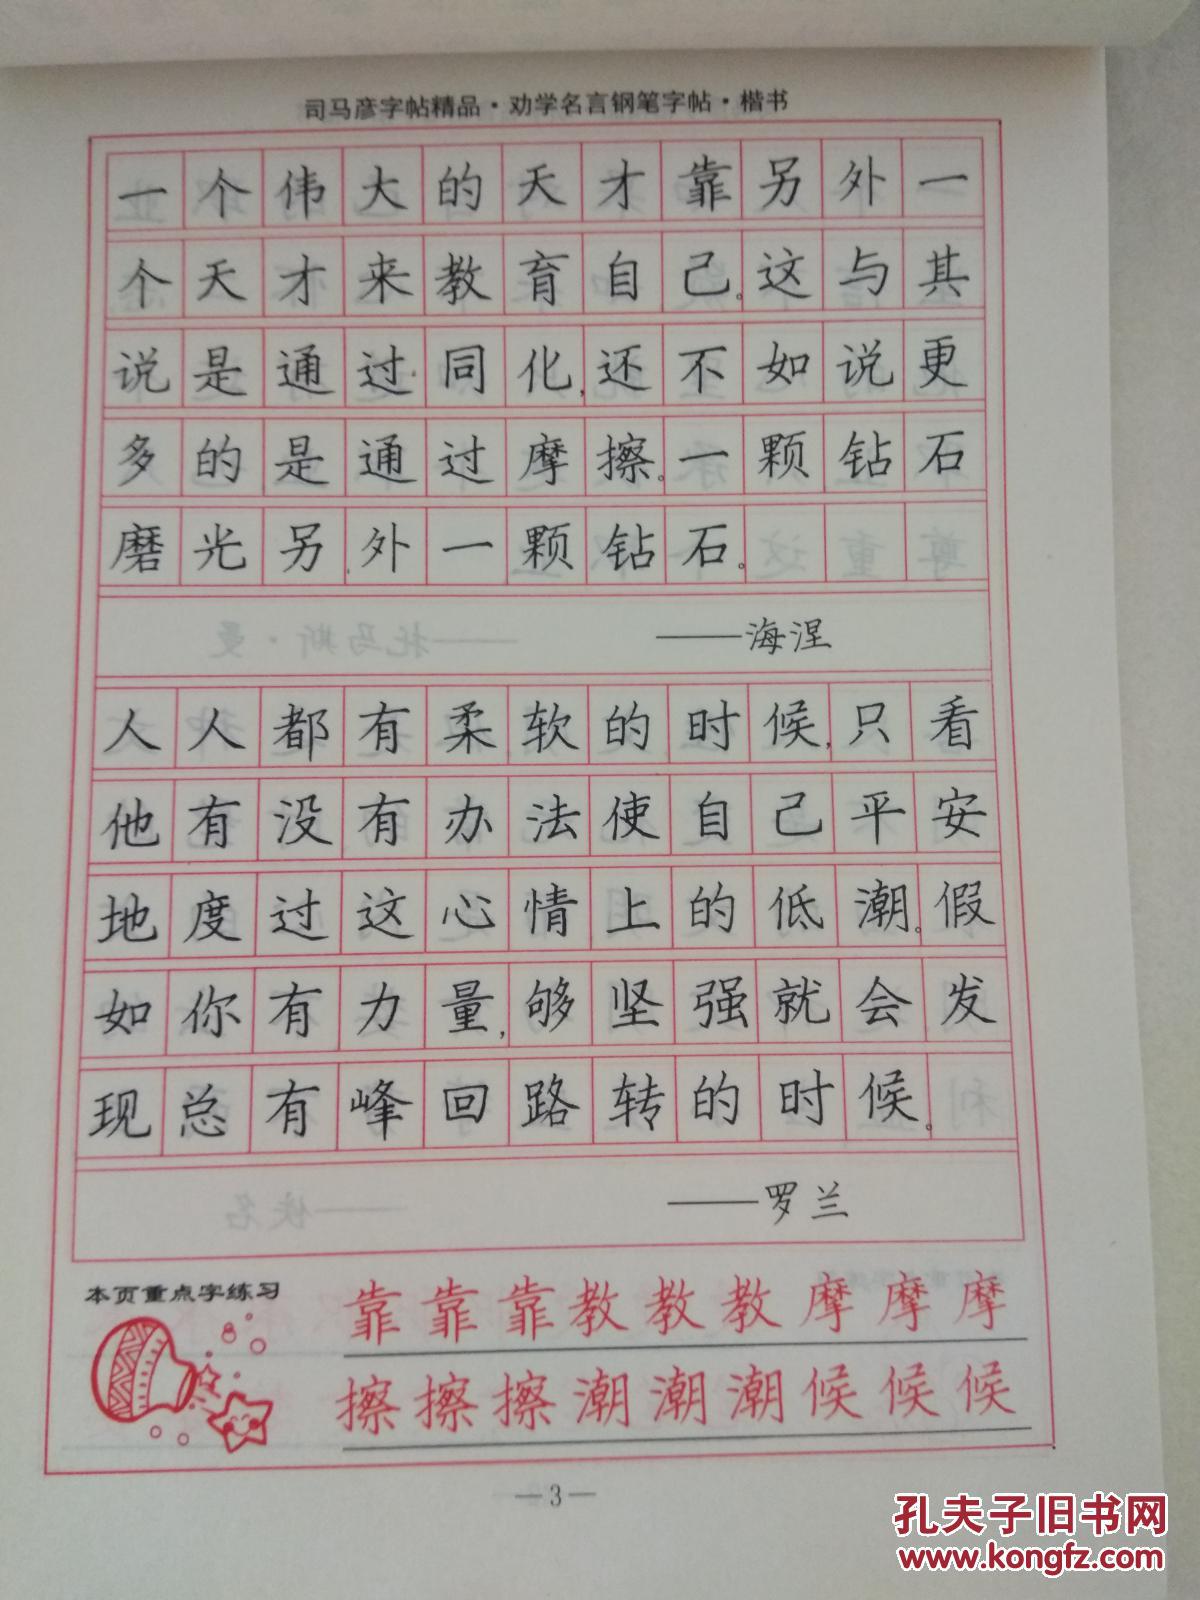 司马彦字帖精品·劝学名言钢笔字帖·楷书
一个伟大的天才靠另外一
个天才来教育自己。这与其
说是通过同化,还不如说更
多的是通过摩擦。一颗钻石
磨光另外一颗钻石。
——海涅
人人都有柔软的时候,只看
他有没有办法使自己平安
地度过这心情上的低潮。假
如你有力量,够坚强就会发
现总有峰回路转的时候。
——罗兰
本页重点字练习
靠靠靠教教教摩摩摩
擦擦擦潮潮潮候候候
—3—
孔夫子旧书网
www.kongfz.com